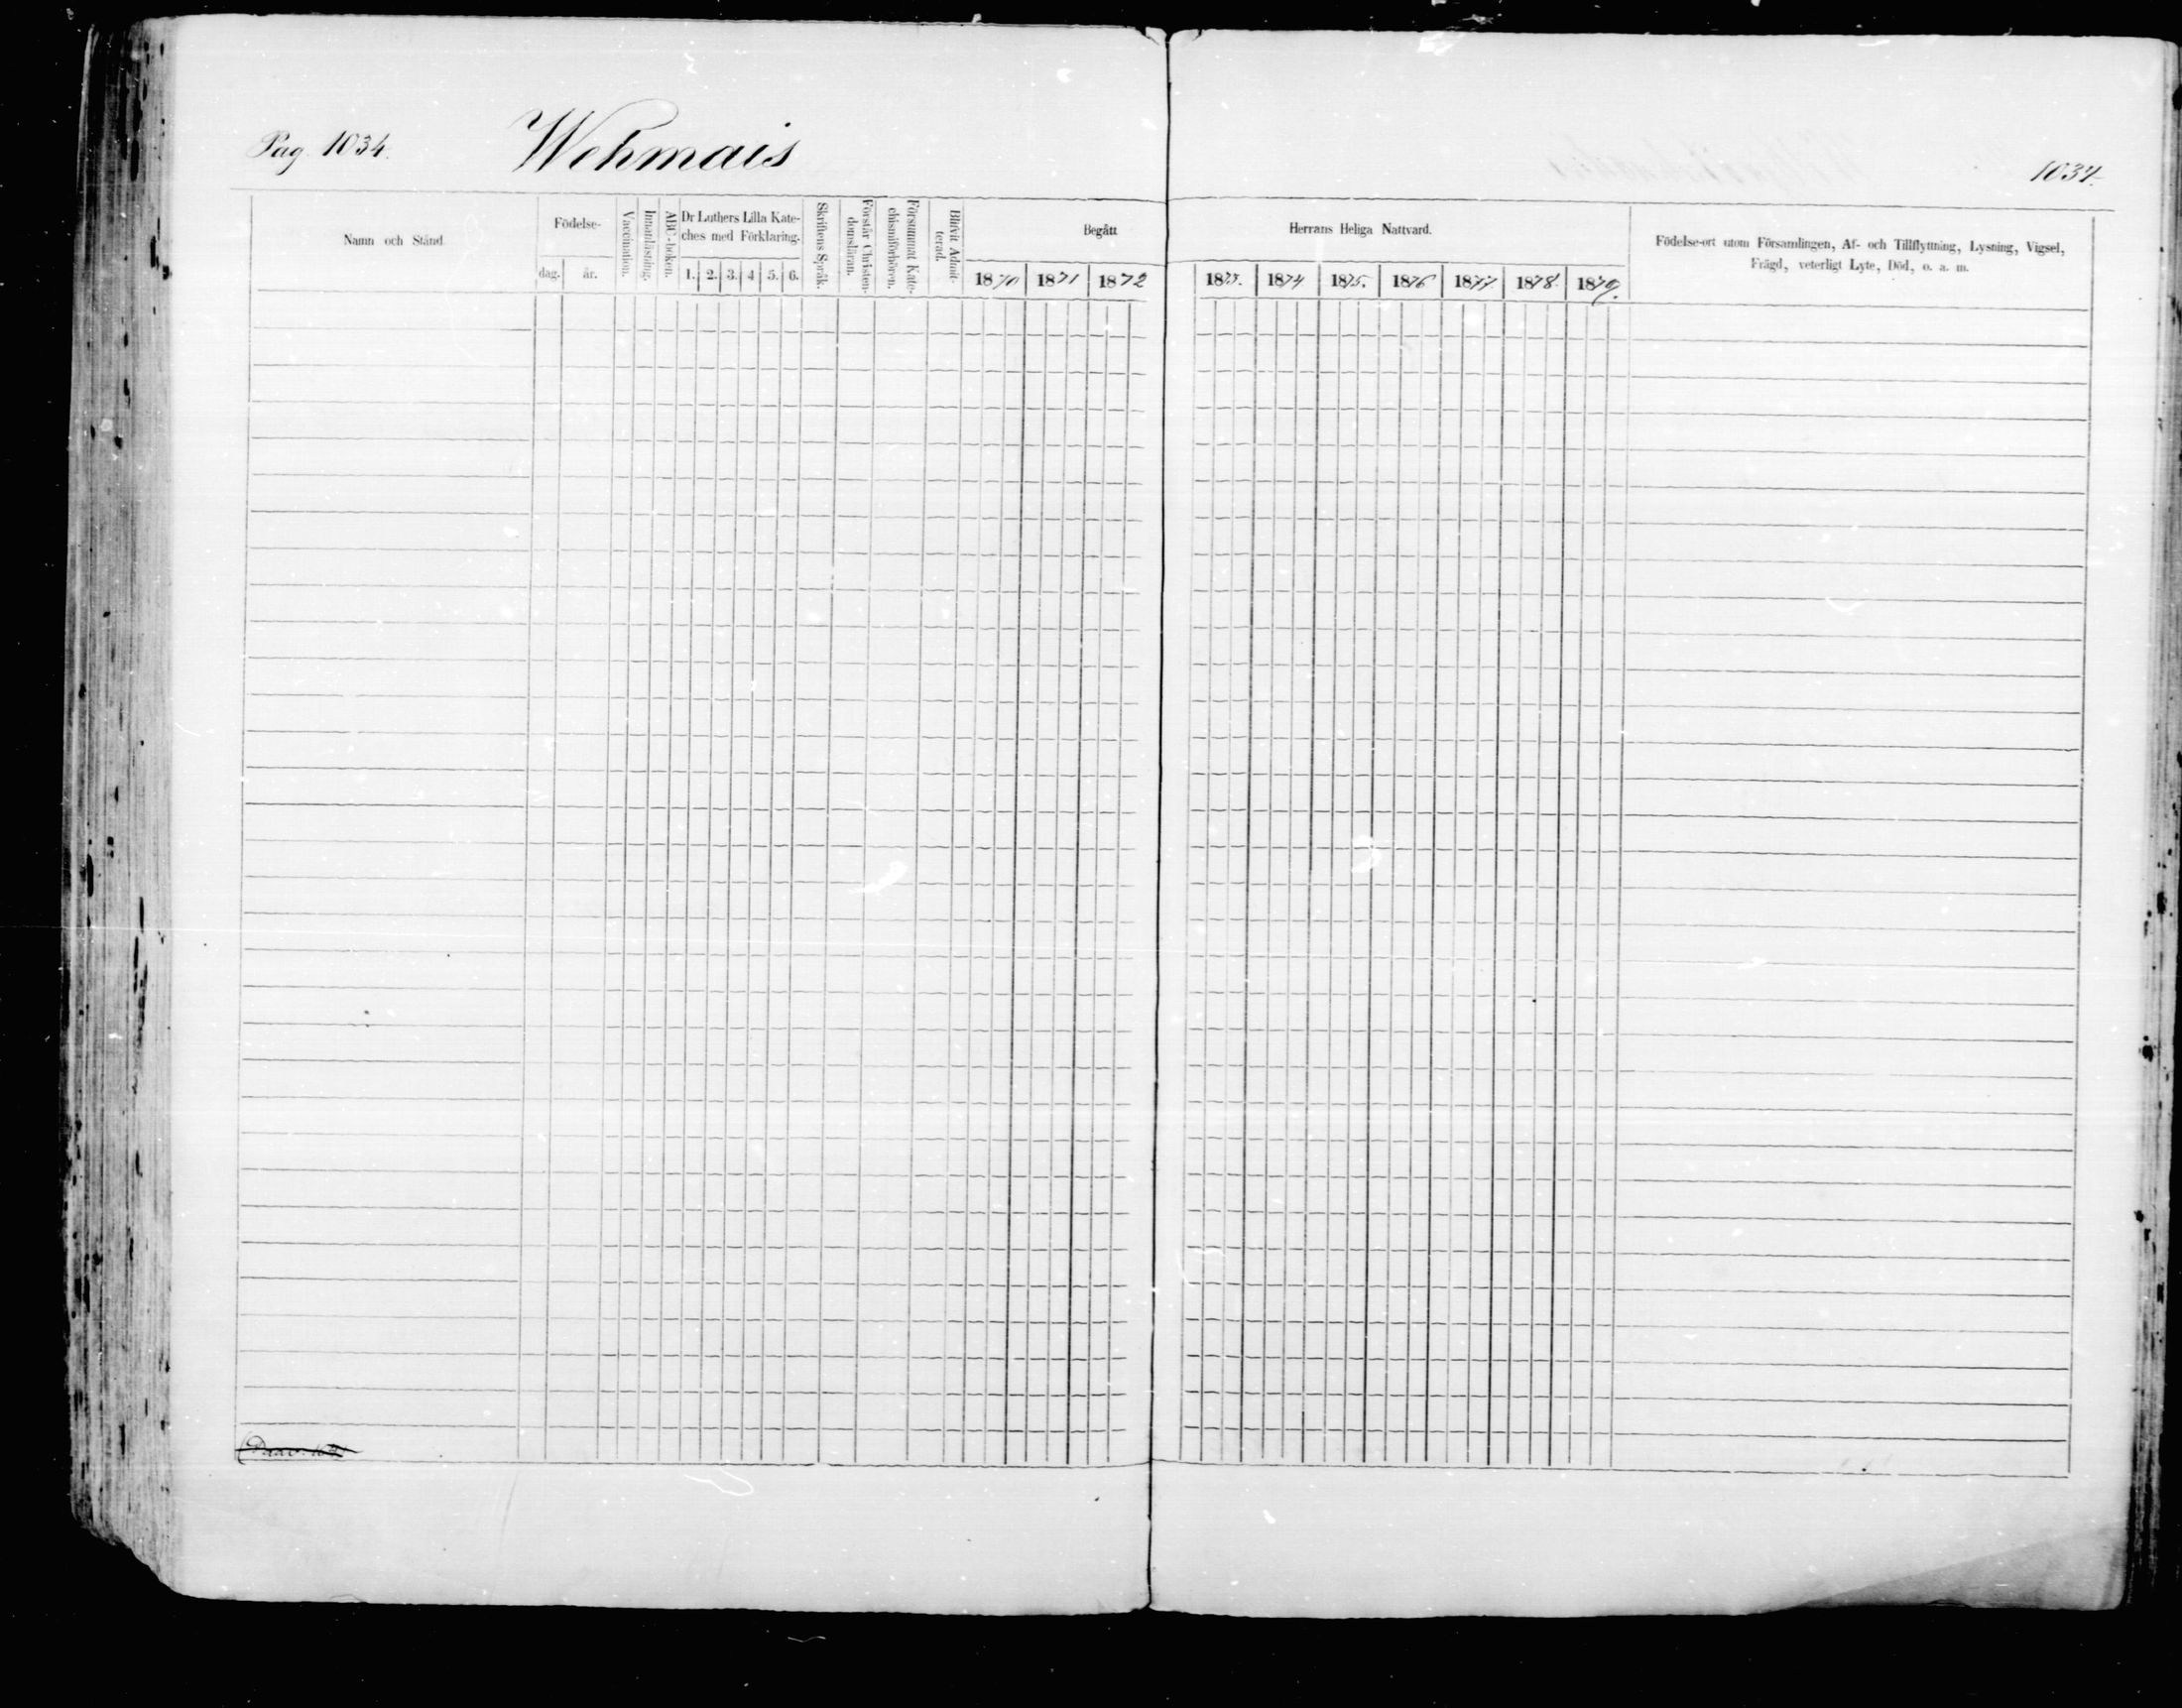 Pag. 1034.
Wehmais
1034.
Namn och Stånd
Födelse-
dag.
år.
Vaccination.
Innanläsning.
ABC-boken.
Dr Luthers Lilla Kate-
ches med Förklaring.
1. 2. 3. 4 5. 6.
Skriftens Språk.
Förstår Christen-
domsläran.
Försummat Kate-
chismiförhören.
Blifvit Admit-
terad.
Begått
Herrans Heliga Nattvard.
1870 1871 1872
1873. 1874 1875. 1876 1877 1878. 1879.
Födelse-ort utom Församlingen, Af- och Tillflyttning, Lysning, Vigsel,
Frägd, veterligt Lyte, Död, o. a. m.